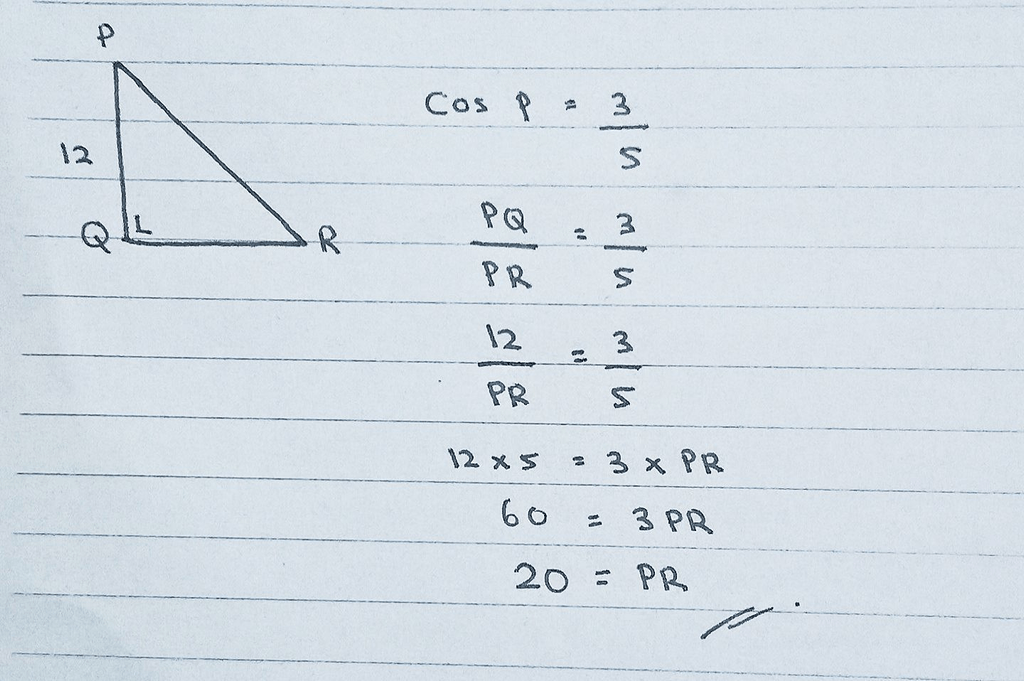 P
12
Q
R
Cos P = 3/5
PQ/PR = 3/5
12/PR = 3/5
12 × 5 = 3 × PR
60 = 3 PR
20 = PR